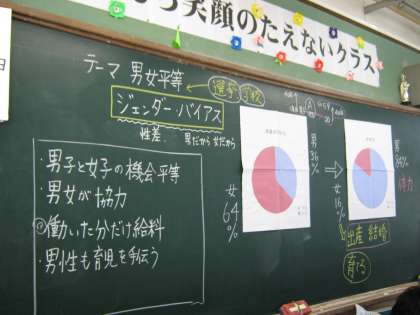 笑顔のたえないクラス
日
テーマ 男女平等
選挙 学校
ジェンダー・バイアス
性差 男だから 女だから
・男子と女子の機会平等
・男女が協力
働いた分だけ給料
・男性も育児を手伝う
女 64%
男 36%
女 16%
男 84%
体力
出産 結婚
育てる